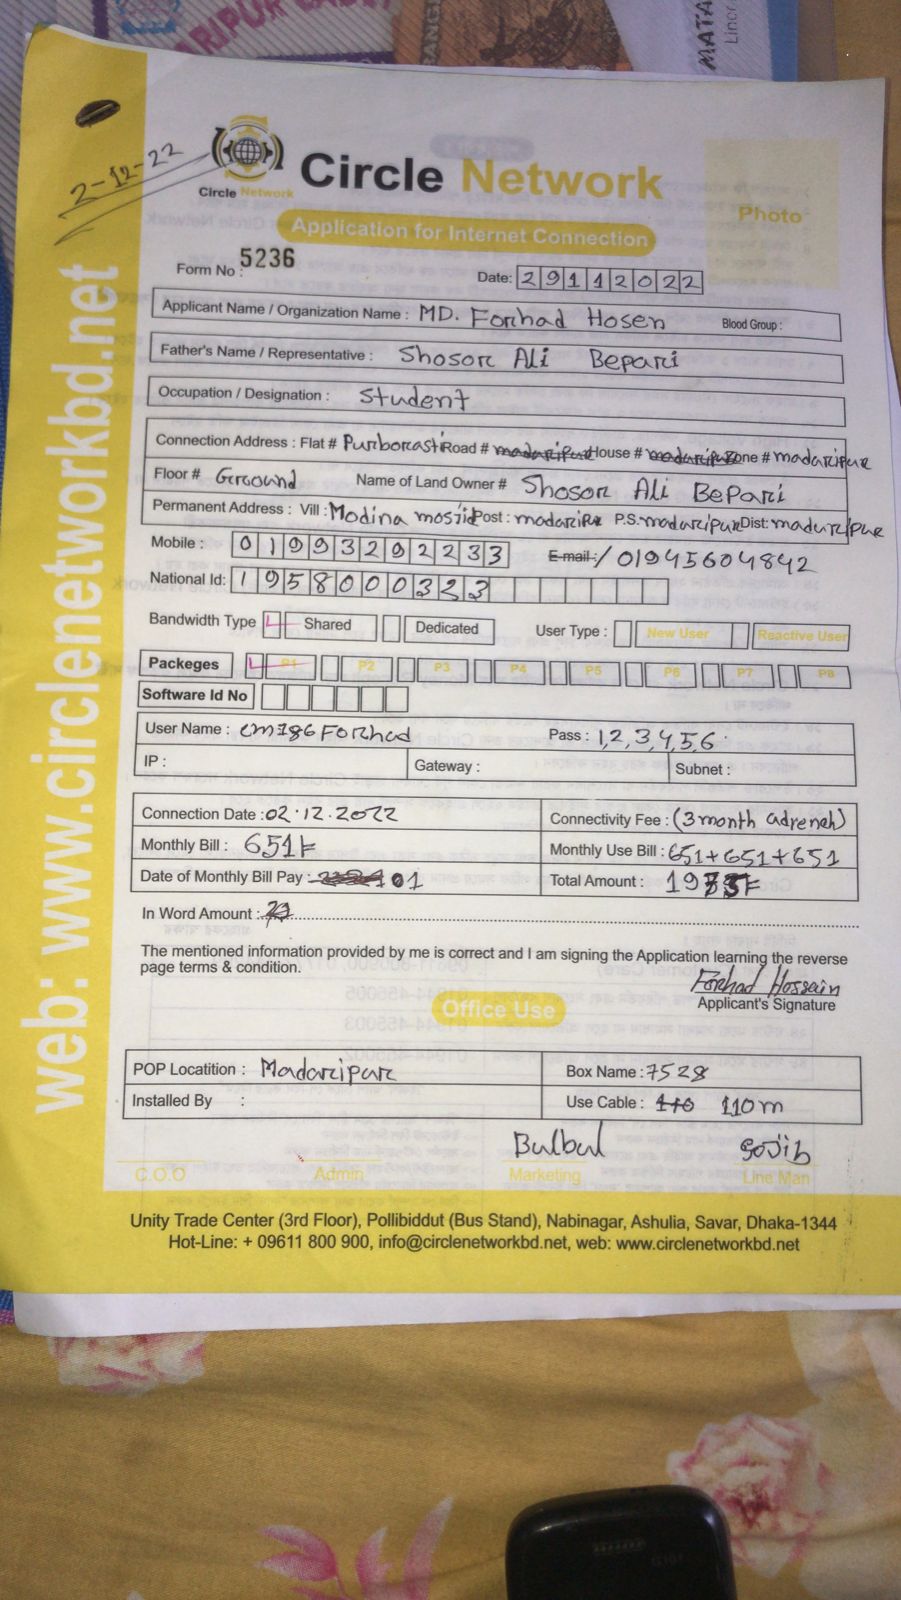 ARIPUR
BANG
MATA
2-12-22
Circle Network
Circle Network
Photo
Application for Internet Connection
Form No : 5236
Date: 29112022
Applicant Name / Organization Name : MD. Forhad Hosen Blood Group :
Father's Name / Representative : Shosor Ali Bepari
Occupation / Designation : Student
Connection Address : Flat # Purborasti Road # madaripur House # madaripur Zone # madaripur
Floor # Groound Name of Land Owner # Shosor Ali Bepari
Permanent Address : Vill : Modina mosjid Post : madaripur P.S. madaripur Dist: madaripur
Mobile : 01993292233 E-mail : / 01945604842
National Id: 1958000323
Bandwidth Type Shared Dedicated User Type : New User Reactive User
Packeges P1 P2 P3 P4 P5 P6 P7 P8
Software Id No
User Name : cm186Forhad Pass : 1,2,3,4,5,6
IP : Gateway : Subnet :
Connection Date : 02.12.2022 Connectivity Fee : (3 month adreneh)
Monthly Bill : 651 Monthly Use Bill : 651+651+651
Date of Monthly Bill Pay : 01 Total Amount :
In Word Amount :
The mentioned information provided by me is correct and I am signing the Application learning the reverse
page terms & condition.
Forhad Hossain
Applicant's Signature
Office Use
POP Locatition : Madaripur Box Name : 7528
Installed By : Use Cable : 110 110m
Bulbul Sojib
C.O.O Admin Marketing Line Man
Unity Trade Center (3rd Floor), Pollibiddut (Bus Stand), Nabinagar, Ashulia, Savar, Dhaka-1344
Hot-Line: + 09611 800 900, info@circlenetworkbd.net, web: www.circlenetworkbd.net
web: www.circlenetworkbd.net